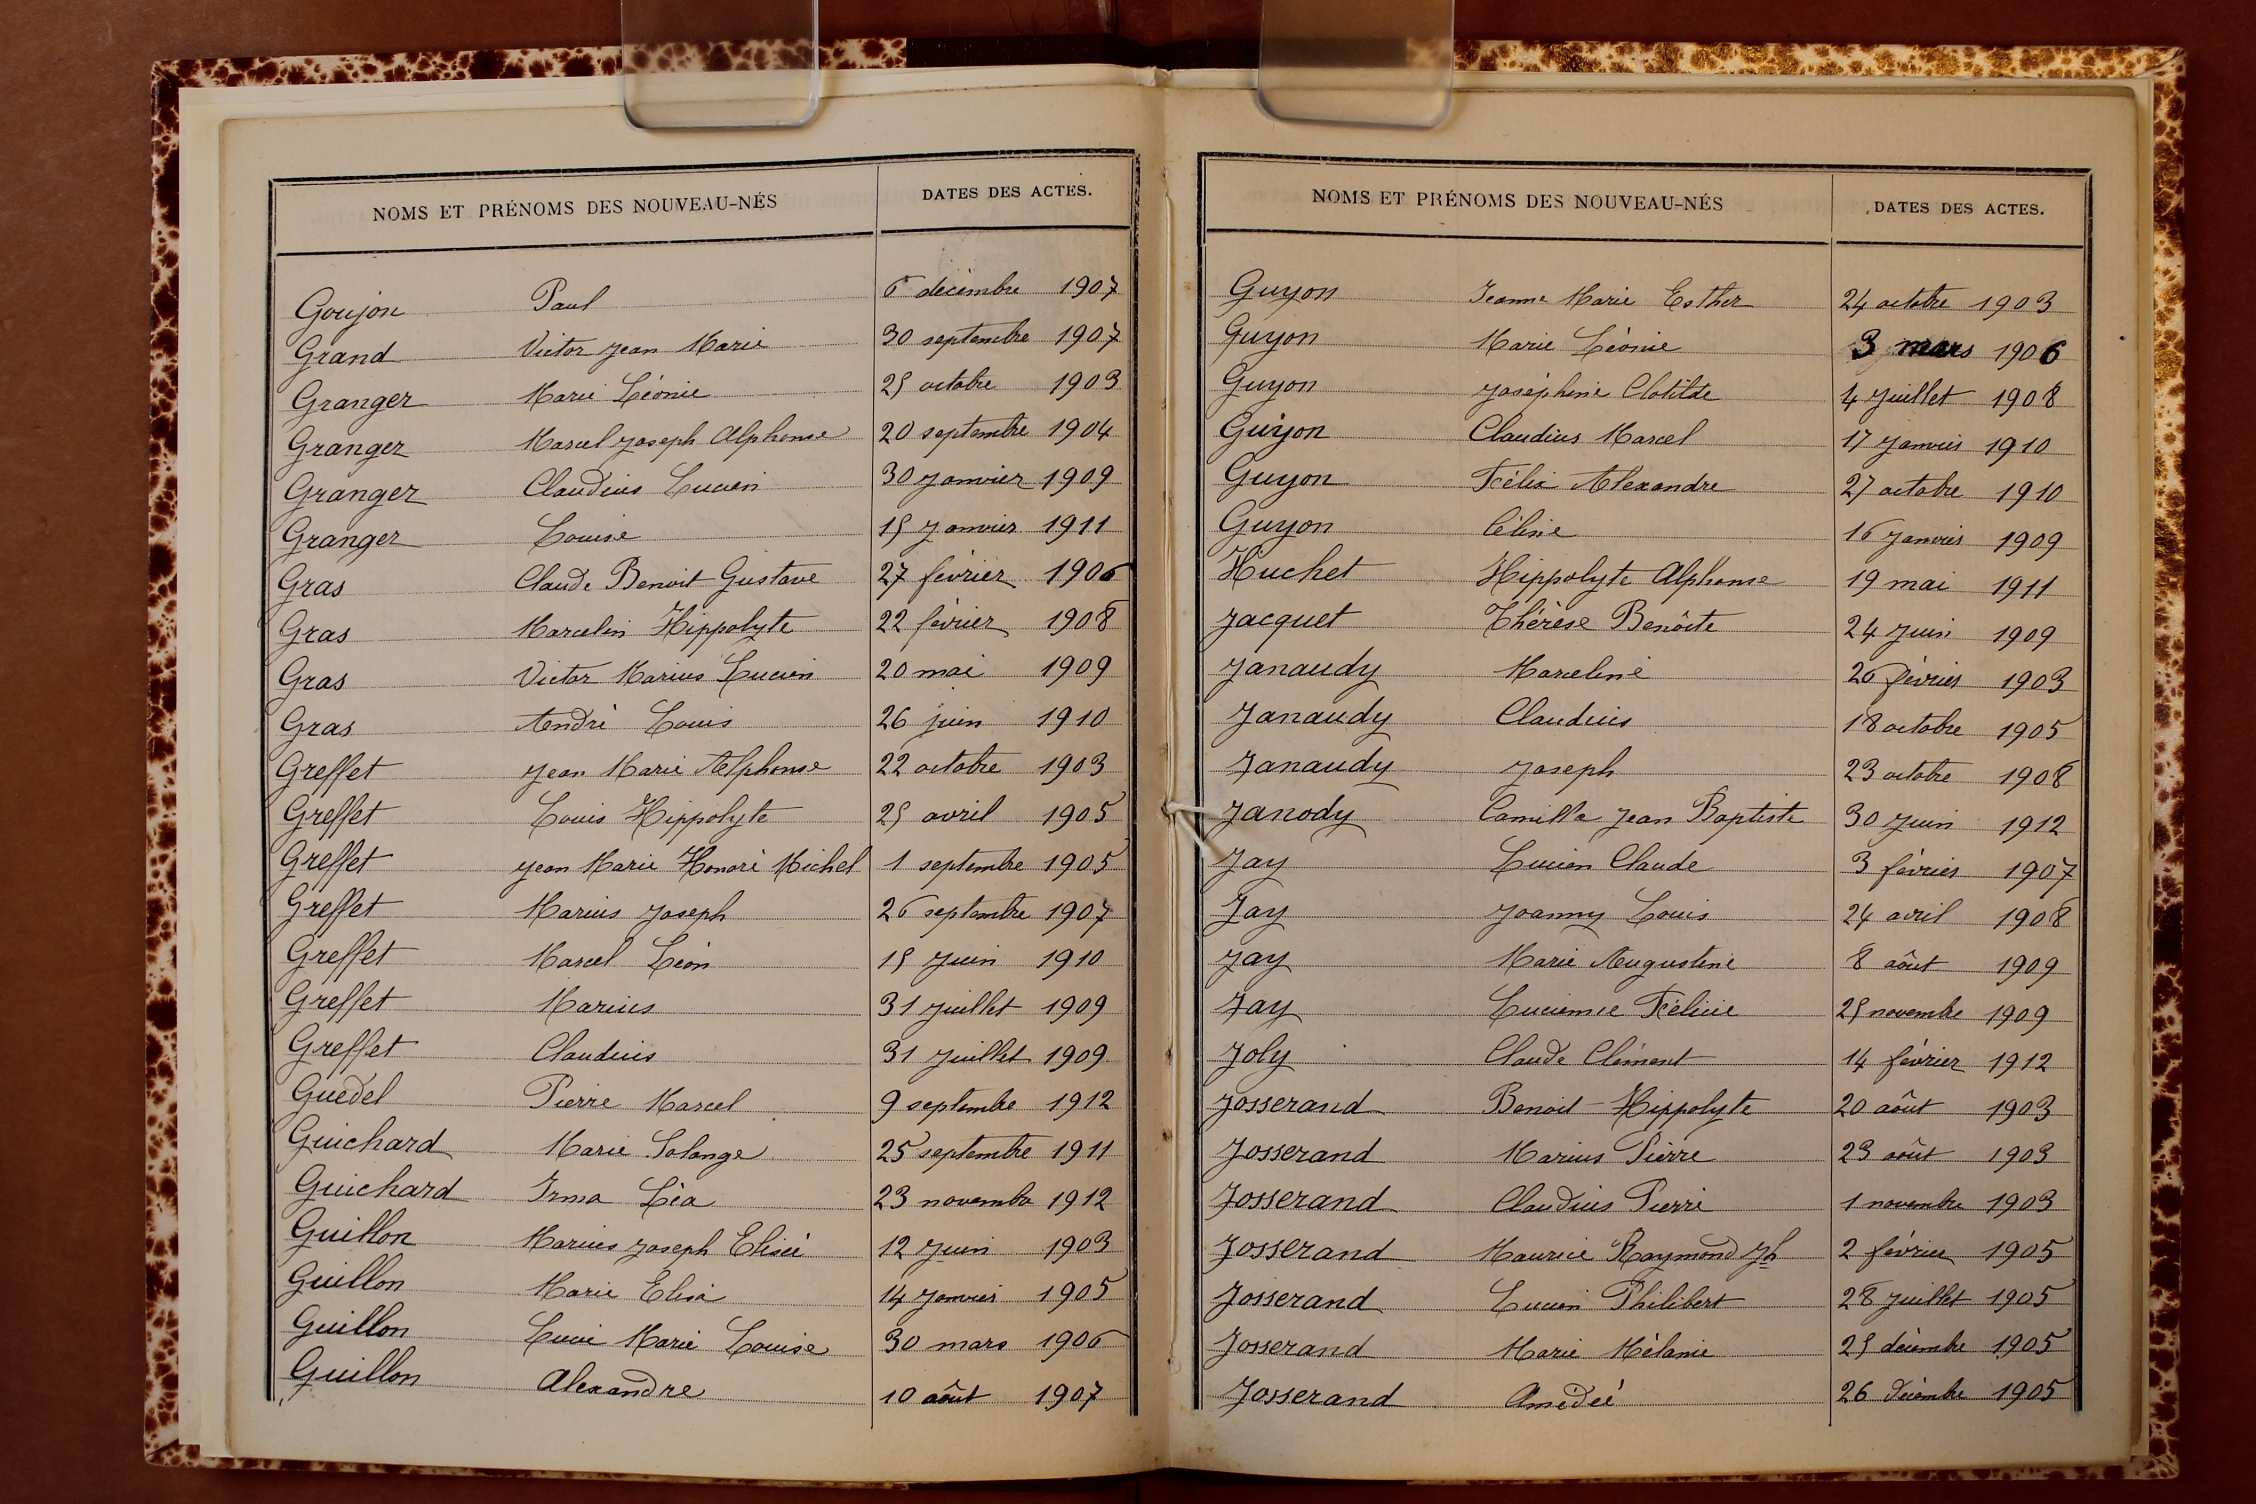 NOMS ET PRÉNOMS DES NOUVEAU-NÉS DATES DES ACTES.
Goujon Paul 6 décembre 1907
Grand Victor Jean Marie 30 septembre 1907
Granger Marie Léonie 25 octobre 1903
Granger Marcel Joseph Alphonse 20 septembre 1904
Granger Claudius Lucien 30 Janvier 1909
Granger Louise 15 Janvier 1911
Gras Claude Benoit Gustave 27 février 1906
Gras Marcelin Hippolyte 22 février 1908
Gras Victor Marius Lucien 20 mai 1909
Gras André Louis 26 juin 1910
Greffet Jean Marie Alphonse 22 octobre 1903
Greffet Louis Hippolyte 25 avril 1905
Greffet Jean Marie Honoré Michel 1 septembre 1905
Greffet Marius Joseph 26 septembre 1907
Greffet Marcel Léon 15 Juin 1910
Greffet Marius 31 Juillet 1909
Greffet Claudius 31 Juillet 1909
Guedel Pierre Marcel 9 septembre 1912
Guichard Marie Solange 25 septembre 1911
Guichard Irma Léa 23 novembre 1912
Guillon Marius Joseph Elisée 12 Juin 1903
Guillon Marie Elisa 14 Janvier 1905
Guillon Lucie Marie Louise 30 mars 1906
Guillon Alexandre 10 août 1907
NOMS ET PRÉNOMS DES NOUVEAU-NÉS DATES DES ACTES.
Guyon Jeanne Marie Esther 24 octobre 1903
Guyon Marie Léonie 3 mars 1906
Guyon Joséphine Clotilde 4 Juillet 1908
Guyon Claudius Marcel 17 Janvier 1910
Guyon Félix Alexandre 27 octobre 1910
Guyon Céline 16 Janvier 1909
Huchet Hippolyte Alphonse 19 mai 1911
Jacquet Thérèse Benôite 24 Juin 1909
Janaudy Marceline 26 février 1903
Janaudy Claudius 18 octobre 1905
Janaudy Joseph 23 octobre 1908
Janody Camille Jean Baptiste 30 Juin 1912
Jay Lucien Claude 3 février 1907
Jay Joanny Louis 24 avril 1908
Jay Marie Augustine 8 août 1909
Jay Lucienne Félicie 25 novembre 1909
Joly Claude Clément 14 février 1912
Josserand Benoit-Hippolyte 20 août 1903
Josserand Marius Pierre 23 août 1903
Josserand Claudius Pierre 1 novembre 1903
Josserand Maurice Raymond Jh 2 février 1905
Josserand Lucien Philibert 28 Juillet 1905
Josserand Marie Mélanie 25 décembre 1905
Josserand Amédée 26 décembre 1905